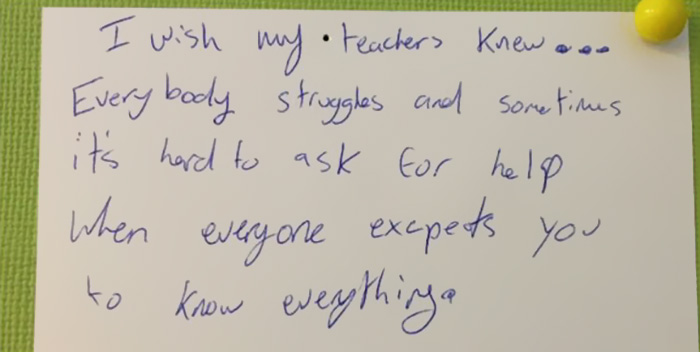 I wish my teachers knew...
Everybody struggles and sometimes
it's hard to ask for help
When everyone excpects you
to know everything.